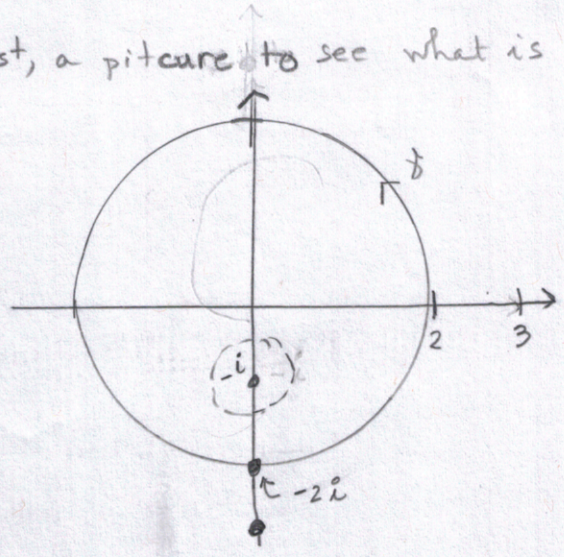 st, a pitcure to see what is
γ
2 3
-i
-2i